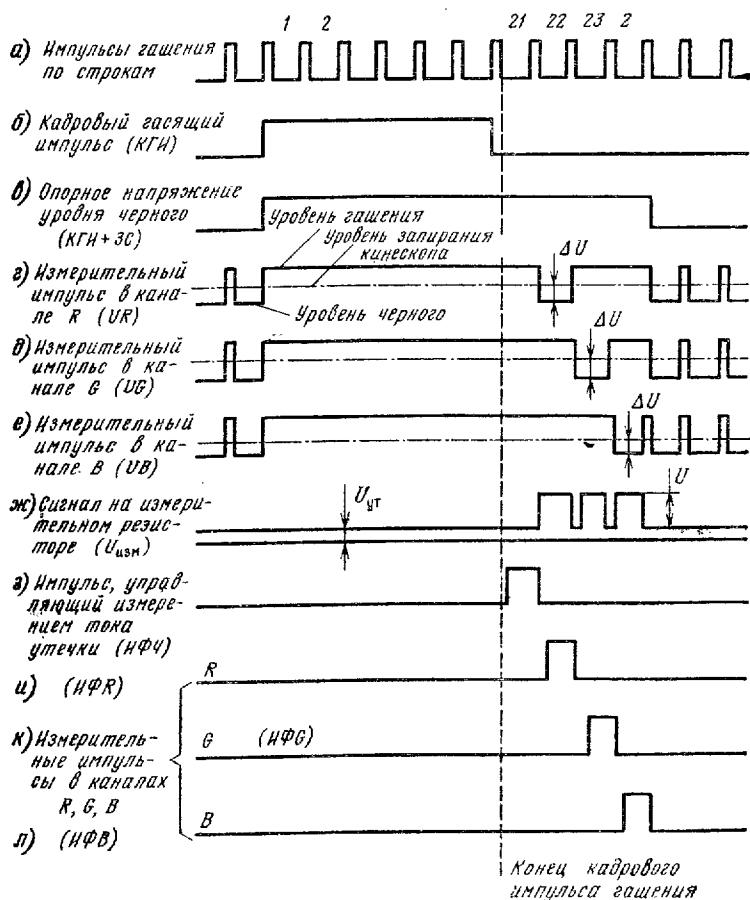 1 2 21 22 23 2
а) Импульсы гашения
по строкам
б) Кадровый гасящий
импульс (КГИ)
в) Опорное напряжение
уровня черного
(КГИ+3С)
Уровень гашения
Уровень запирания
кинескопа
г) Измерительный
импульс в кана-
ле R (UR)
ΔU
Уровень черного
д) Измерительный
импульс в ка-
нале G (UG)
ΔU
е) Измерительный
импульс в ка-
нале B (UB)
ΔU
ж) Сигнал на измери-
тельном резис-
торе (Uизм)
Uут
U
з) Импульс, управ-
ляющий измере-
нием тока
утечки (ИФЧ)
и) (ИФR)
R
к) Измеритель-
ные импуль-
сы в каналах
R, G, B
G (ИФG)
л) (ИФB)
B
Конец кадрового
импульса гашения